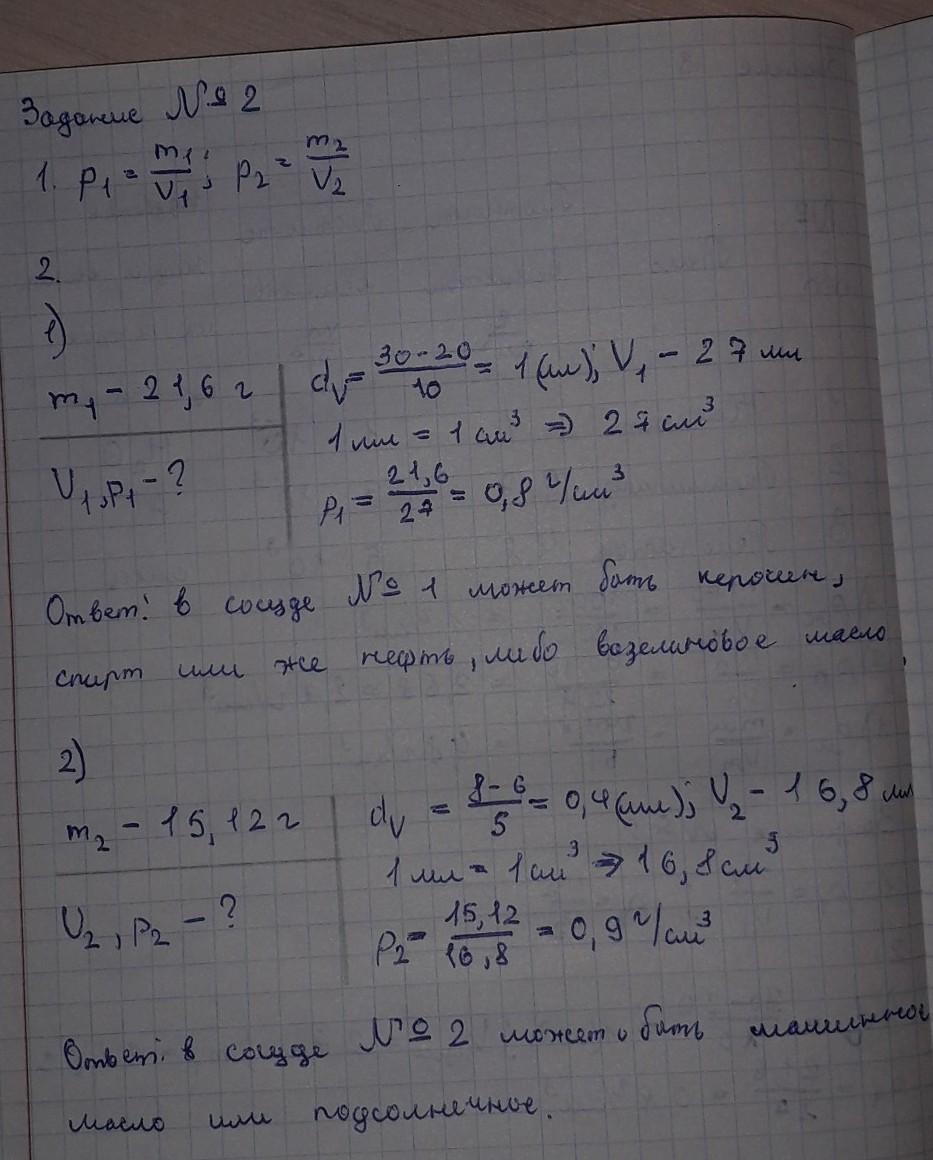 Задание № 2
1. p₁ = m₁/V₁; p₂ = m₂/V₂
2.
1)
m₁ – 21,6 г
V₁, p₁ – ?
d_V = (30-20)/10 = 1 (мл); V₁ – 27 мл
1 мл = 1 см³ ⇒ 27 см³
p₁ = 21,6/27 = 0,8 г/см³
Ответ: в сосуде № 1 может быть керосин,
спирт или же нефть, либо вазелиновое масло
2)
m₂ – 15,12 г
V₂, p₂ – ?
d_V = (8-6)/5 = 0,4 (мл); V₂ – 16,8 мл
1 мл = 1 см³ ⇒ 16,8 см³
p₂ = 15,12/16,8 = 0,9 г/см³
Ответ: в сосуде № 2 может быть машинное
масло или подсолнечное.